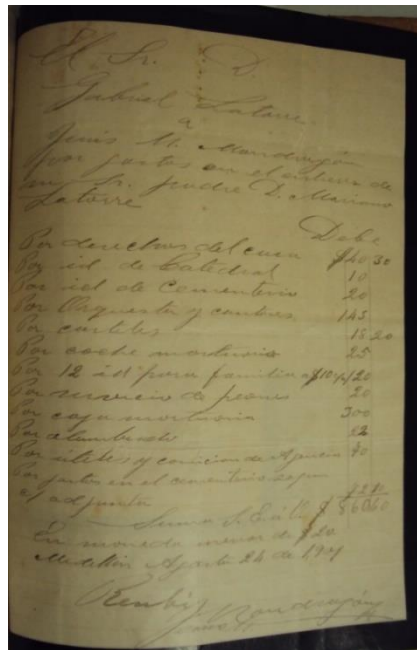 El Sr. D.
Gabriel Latorre
a
Jenis M. Mondragón
por gastos en el entierro de
su Sr. padre D. Mariano
Latorre
Debe
Por derechos del cura $40 30
Por id. de Catedral 10
Por id de Cementerio 20
Por Orquesta y cantores 145
Por carteles 15 20
Por coche mortuorio 25
Por 12 id para familia a $10 c/u 120
Por servicio de peones 20
Por caja mortuoria 300
Por alumbrado 22
Por útiles y comision de Agencia 40
Por gastos en el cementerio segun
adjunta
Suma S. E. $
En moneda menor de $20
Medellín Agosto 24 de 19
Recibí
Mondragón